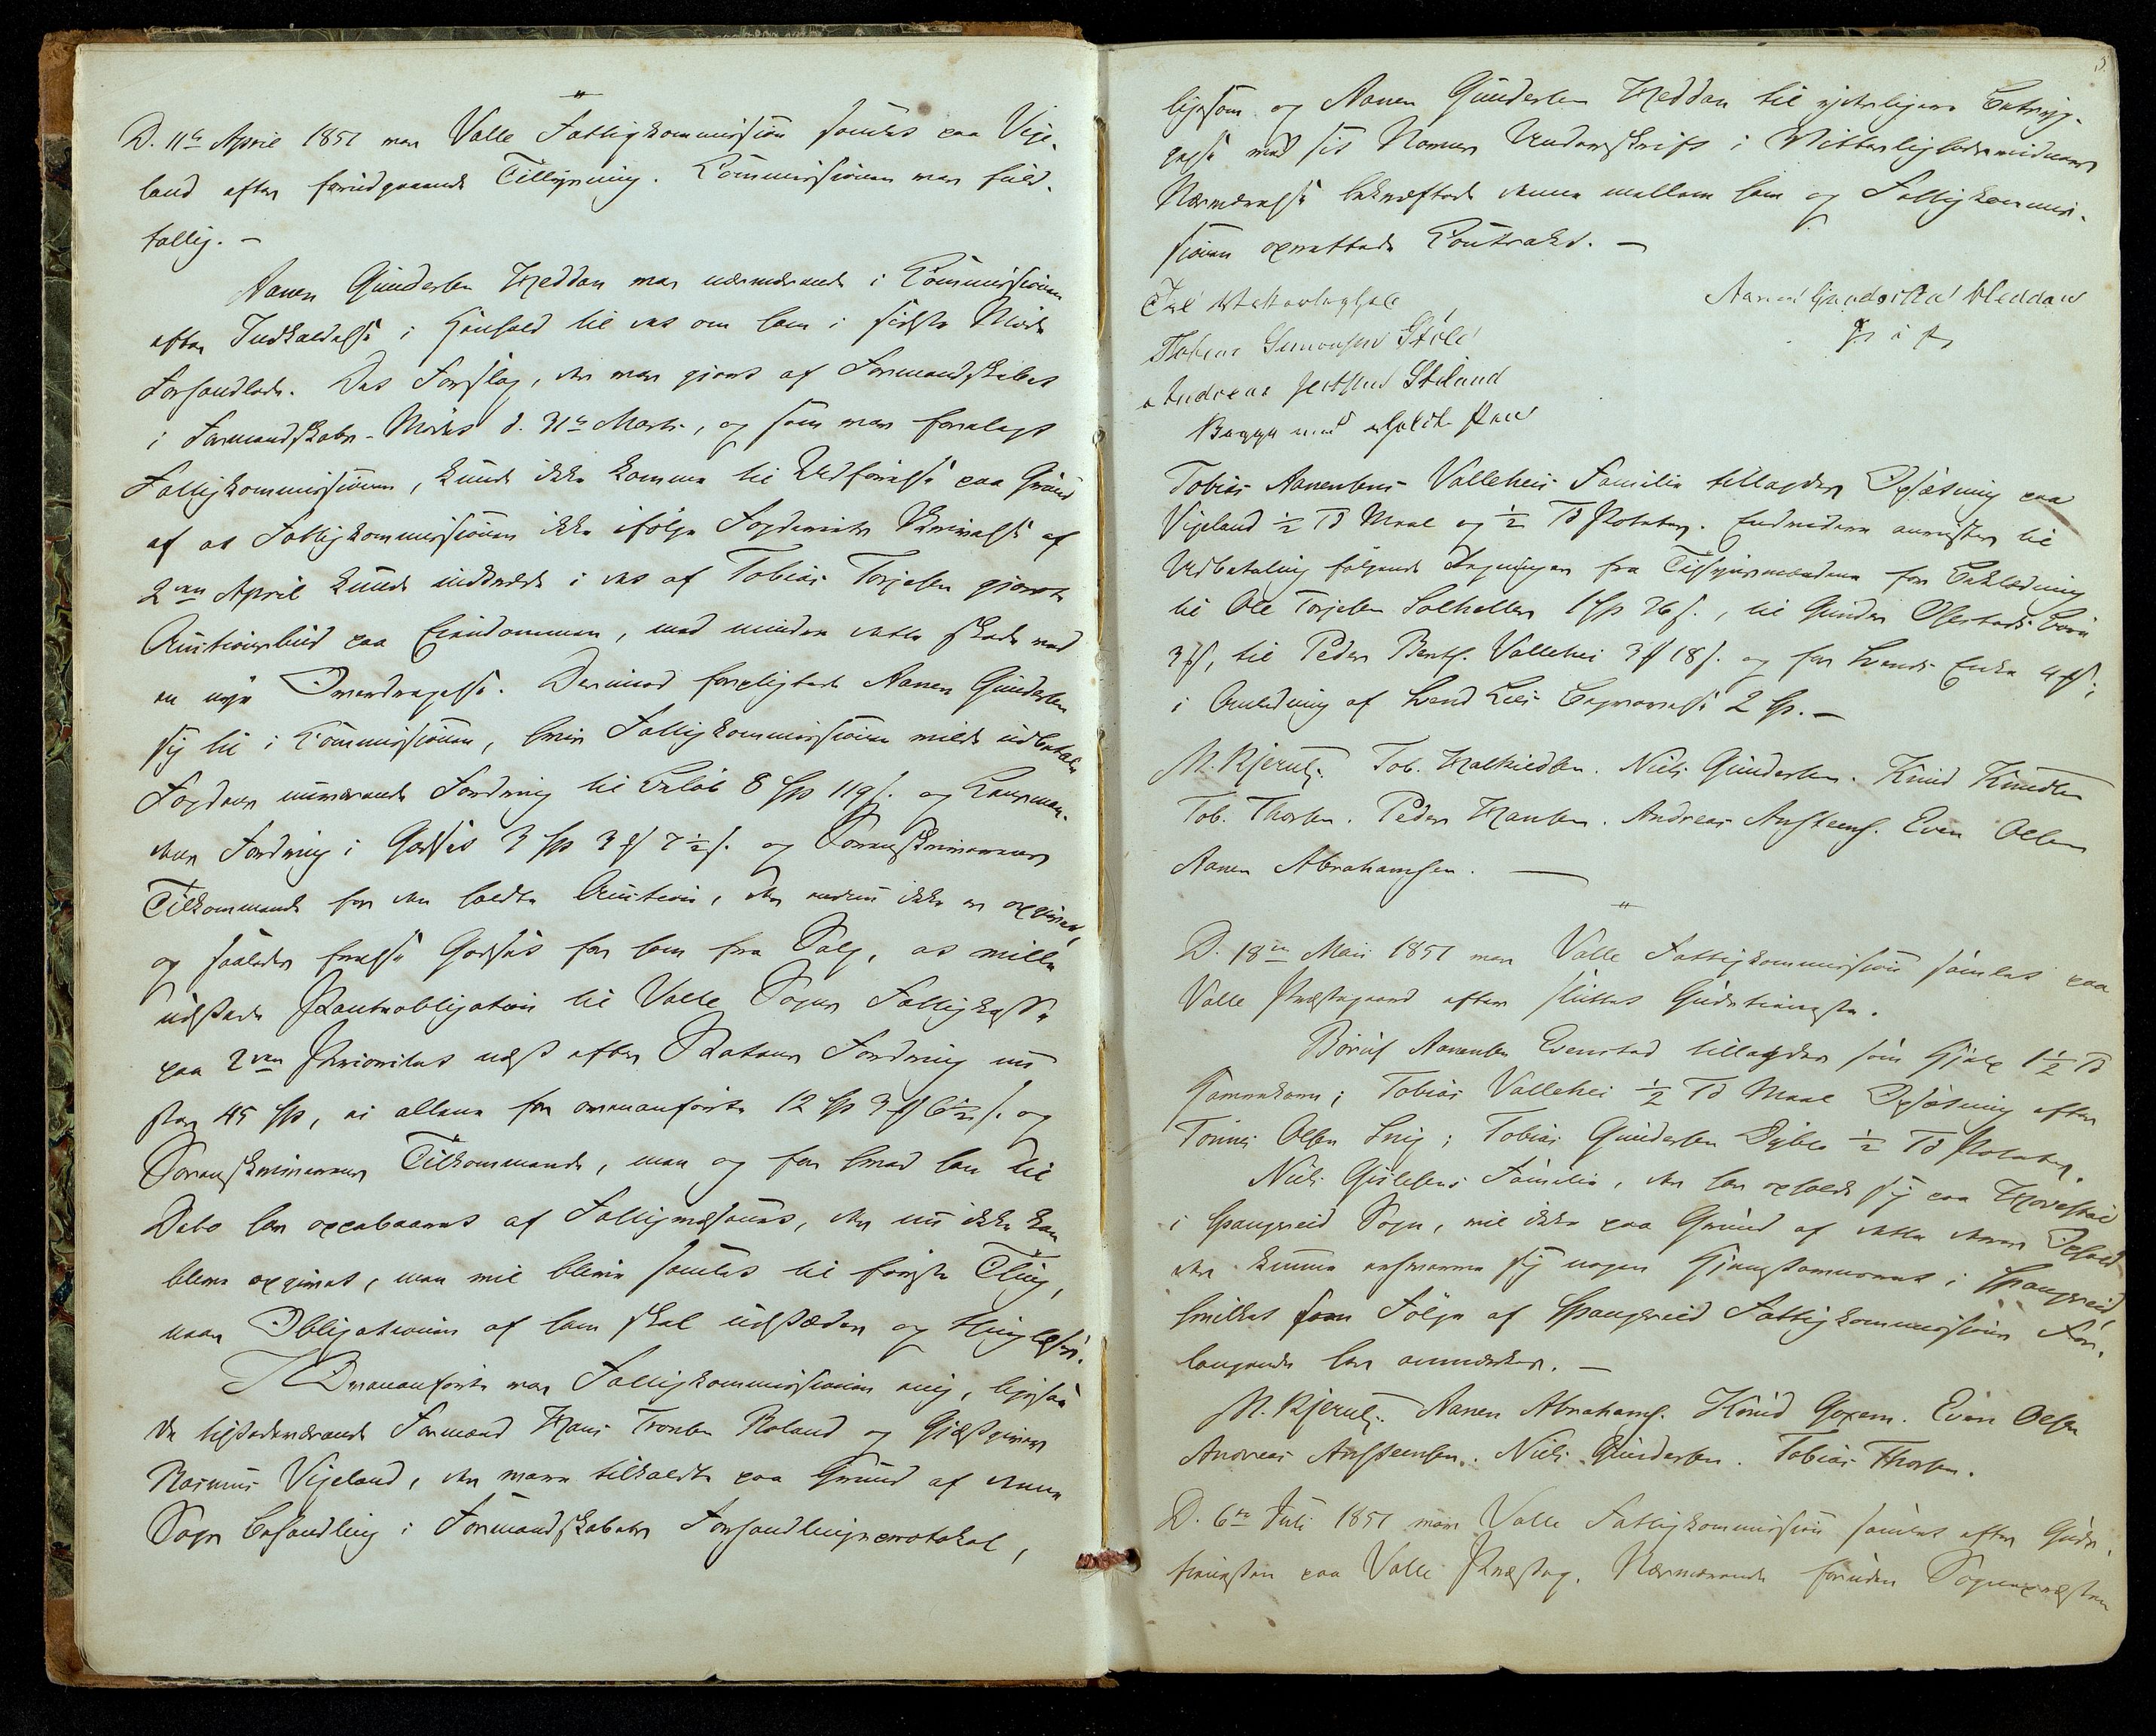 D. 11te April 1851 var Valle Fattigkommission samlet paa Vige-
land efter forudgaaende Tillysning. Commissionen var fuld-
tallig. –
Aanen Gundersen Heddan var nærværende i Commissionen
efter Indkaldelse i Henhold til det om ham i sidste Møde
Forhandlede. Det Forslag, der var gjort af Formandskabet
i Formandskabs-Mødet d. 31te Marts, og som var forelagt
Fattigkommissionen, kunde ikke komme til Udførelse paa Grund
af at Fattigkommissionen ikke ifølge Fogderiets Skrivelse af
2den April kunde indtræde i det af Tobias Torjesen gjorte
Auctionsbud paa Eiendommen, med mindre dette skede ved
en nye Overdragelse. Derimod forpligtede Aanen Gundersen
sig til i Commissionen, hvis Fattigkommissionen vilde udbetale
Fogdens nuværende Fordring til Beløb 8 Spd 119 s. og Kaxman-
dens Fordring i Godset 3 Spd 3 ort 7½ s. og Sorenskriverens
Tilkommende for den holdte Auction, der endnu ikke er opgivet,
og saaledes frelse Godset for ham fra Salg, at ville
udstede Panteobligation til Valle Sogns Fattigkasse
paa 2den Prioritet næst efter Statens Fordring nu
stor 45 Spd, ei allene for ovenanførte 12 Spd 3 ort 6½ s. og
Sorenskriverens Tilkommende, men og for hvad han til
Dato har oppebaaret af Fattigvæsenet, der nu ikke kan
blive opgivet, men vil blive samlet til første Thing,
naar Obligationen af ham skal udstædes og thinglæses.
I Ovenanførte var Fattigkommissionen enig, ligesaa
de tilstedeværende Formænd Hans Tronsen Roland og Gjæstgiver
Rasmus Vigeland, der vare tilkaldte paa Grund af denne
Sags Behandling i Formandskabets Forhandlingsprotokol,
ligesom og Aanen Gundersen Heddan til yderligere Betryg-
gelse med sit Navns Underskrift i Vitterlighedsvidners
Nærværelse bekræftede denne mellem ham og Fattigkommis-
sionen oprettede Contrakt. –
Til Vitterlighed Aanen Gundersen Heddan
Tobias Simonsen Støle
Andreas Stuland
Begge med holdt Pen
Tobias Aanensens Valleheis Familie tillagdes Opsætning paa
Vigeland ½ Td Meel og ½ Td Poteter. Endvidere anvistes til
Udbetaling følgende Regninger fra Tilsynsmændene for Beklædning
til Ole Torjesen Solhellen 1 Spd 26 s., til Gunder Ofestads Børn
3 ort, til Peder Bents. Vallehei 3 ort 18 s. og for Svends Enke 4 ort;
i Anledning af Svend Lies Begravelse 2 Spd. –
M. Kjerulf. Tob. Halkieldsen. Niels Gundersen. Knud Knudsen
Tob. Thorsen. Peder Hansen. Andreas Anstens. Even Olsen
Aanen Abrahamsen. –
D. 18de Mai 1851 var Valle Fattigkommission samlet paa
Valle Præstegaard efter sluttet Gudstieneste.
Børuf Aanensen Evenstad tillagdes som Hjælp 1½ Td
Havrekorn; Tobias Vallehei ½ Td Meel Opsætning efter
Tønnes Olsen Snig; Tobias Gundersen Dybe ½ Td Poteter.
Niels Gislesens Familie, der har opholdt sig paa
i Spangereid Sogn, vil ikke paa Grund af dette deres Ophold
der kunne erhverve sig nogen Hjemstavnsret i Spangereid
hvilket som Følge af Spangereid Fattigkommissions For-
langende her anmærkes. –
M. Kjerulf. Aanen Abrahams. Knud Goxem. Even Olsen
Andreas Anstensen. Niels Gundersen. Tobias Thorsen.
D. 6te Juli 1851 var Valle Fattigkommission samlet efter Guds-
tienesten paa Valle Præsteg. Nærværende foruden Sognepræsten